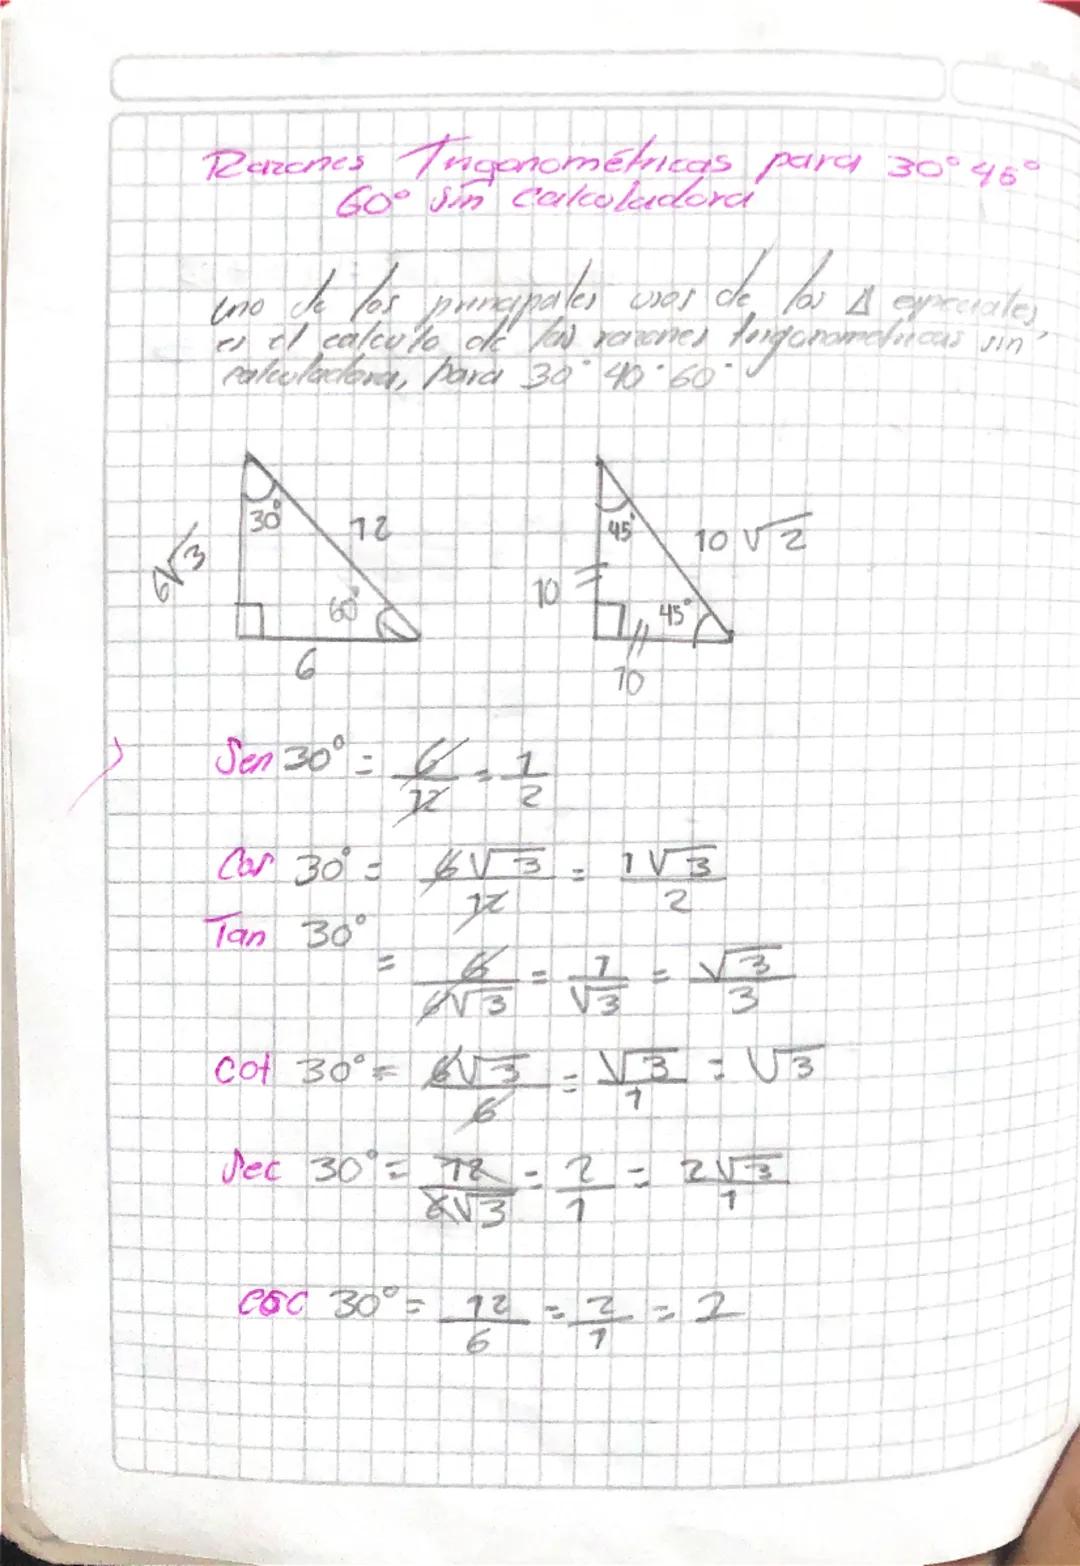 Razones Trigonométricas para 30° 45°
60° sin calculadora
uno de los principales usos de los Δ especiales,
es el calculo de las razones trigonometricas sin
calculadora, para 30° 40° 60°
30°
12
6√3
60°
6
45°
10√2
10
45°
10
Sen 30° = 6/12 = 1/2
Cos 30° = 6√3/12 = 1√3/2
Tan 30°
= 6/6√3 = 1/√3 = √3/3
cot 30° = 6√3/6 = √3/1 = √3
Sec 30° = 12/6√3 = 2/1 = 2√3/1
csc 30° = 12/6 = 2/1 = 2